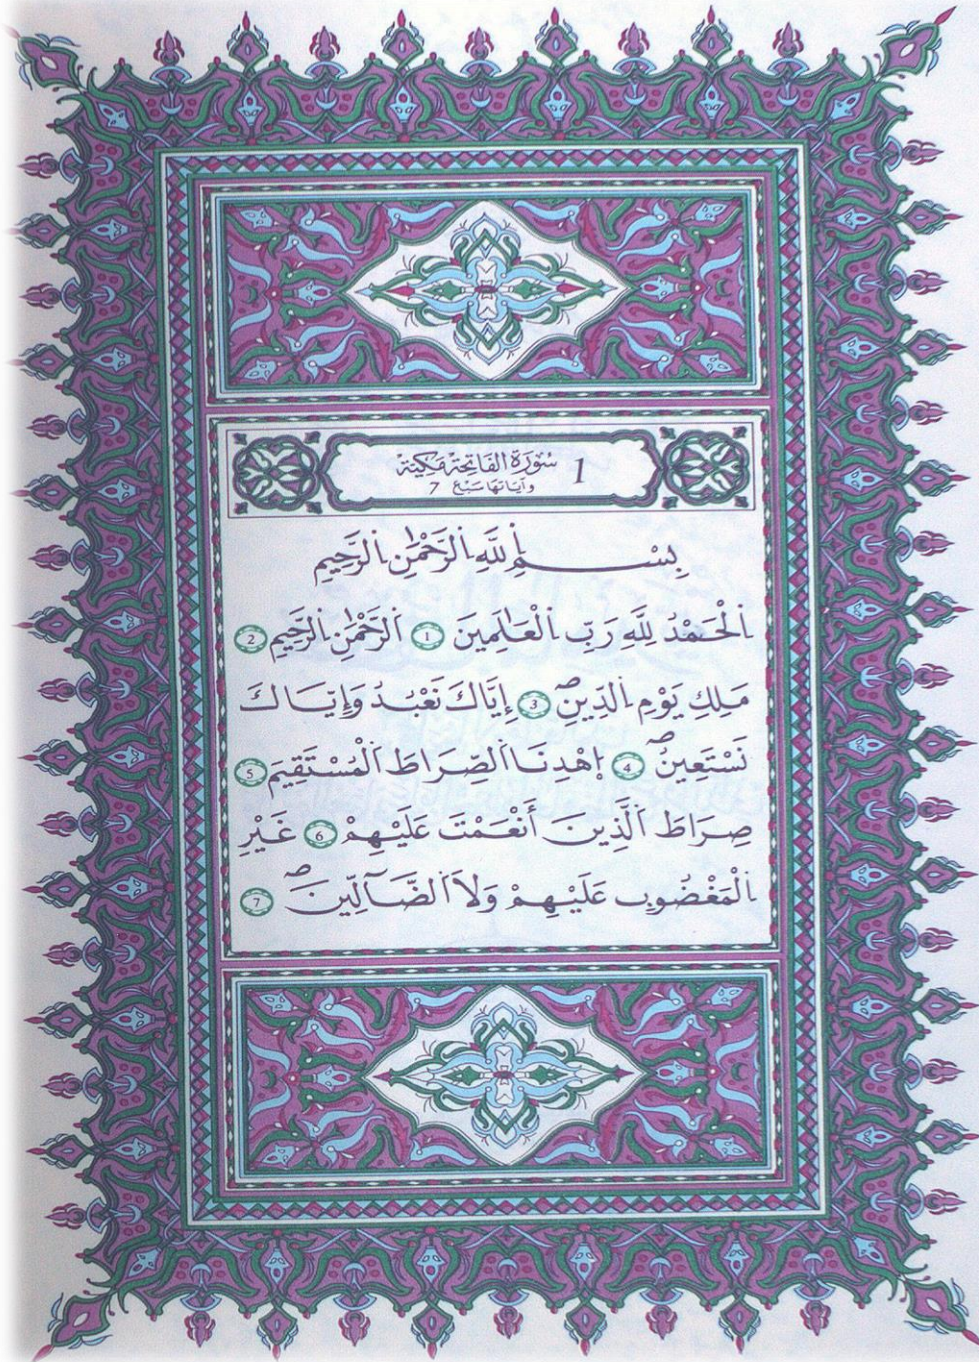 1 سُورَةُ الفَاتِحَة مَكِيَّة
وَآيَاتهَا سَبْع 7
بِسْمِ اِ۬للَّهِ اِ۬لرَّحْمَٰنِ اِ۬لرَّحِيمِ
اَ۬لْحَمْدُ لِلَّهِ رَبِّ اِ۬لْعَٰلَمِينَ 1 اَ۬لرَّحْمَٰنِ اِ۬لرَّحِيمِ 2
مَلِكِ يَوْمِ اِ۬لدِّينِۖ 3 إِيَّاكَ نَعْبُدُ وَإِيَّاكَ
نَسْتَعِينُۖ 4 اُ۪هْدِنَا اَ۬لصِّرَاطَ اَ۬لْمُسْتَقِيمَ 5
صِرَاطَ اَ۬لَّذِينَ أَنْعَمْتَ عَلَيْهِمْ 6 غَيْرِ
اِ۬لْمَغْضُوبِ عَلَيْهِمْ وَلاَ اَ۬لضَّآلِّينَۖ 7